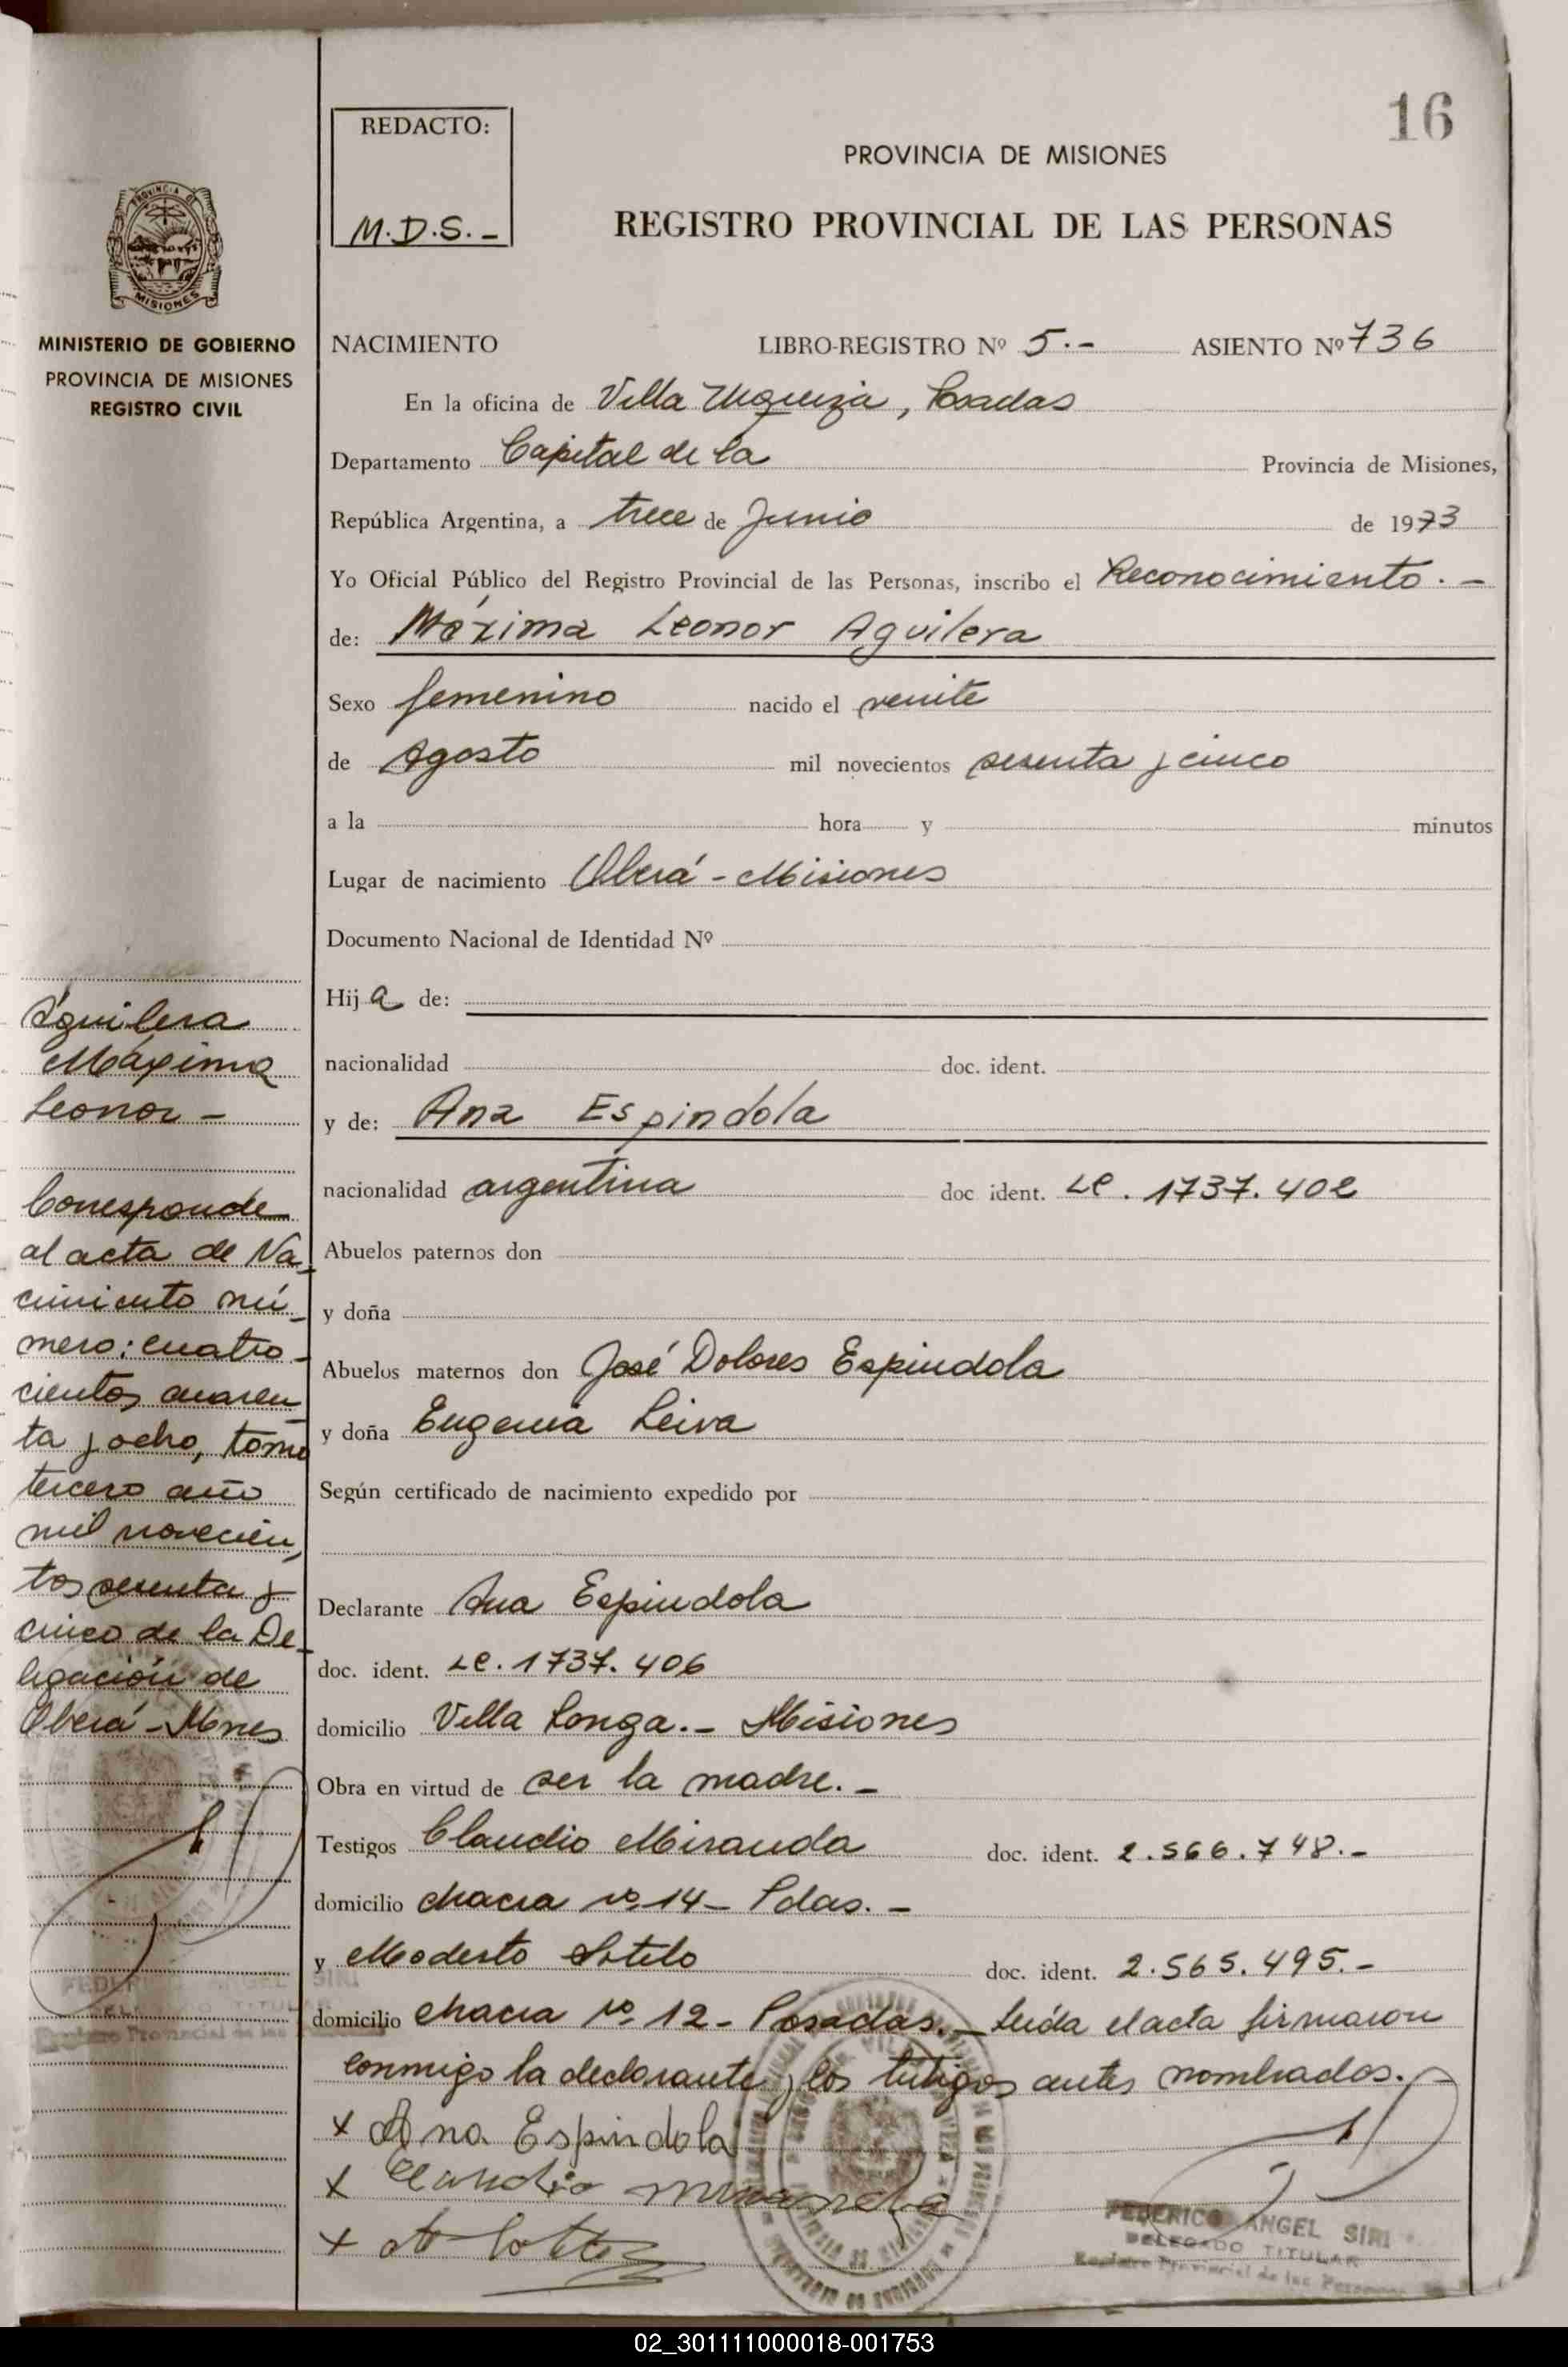 16
REDACTO:
M.D.S.-
PROVINCIA DE MISIONES
REGISTRO PROVINCIAL DE LAS PERSONAS
PROVINCIA DE
MISIONES
MINISTERIO DE GOBIERNO
PROVINCIA DE MISIONES
REGISTRO CIVIL
NACIMIENTO LIBRO-REGISTRO Nº 5.- ASIENTO Nº 736
En la oficina de Villa Urquiza, Posadas
Departamento Capital de la Provincia de Misiones,
República Argentina, a trece de Junio de 1973
Yo Oficial Público del Registro Provincial de las Personas, inscribo el Reconocimiento.-
de: Máxima Leonor Aguilera
Sexo femenino nacido el veinte
de Agosto mil novecientos sesenta y cinco
a la hora y minutos
Lugar de nacimiento Oberá - Misiones
Documento Nacional de Identidad Nº
Hija de:
nacionalidad doc. ident.
y de: Ana Espindola
nacionalidad argentina doc ident. LC. 1737.402
Abuelos paternos don
y doña
Abuelos maternos don José Dolores Espindola
y doña Eugenia Leiva
Según certificado de nacimiento expedido por
Declarante Ana Espindola
doc. ident. LC. 1737.406
domicilio Villa Longa.- Misiones
Obra en virtud de ser la madre.-
Testigos Claudio Miranda doc. ident. 2.566.748.-
domicilio chacra nº 14 - Pdas.-
y Modesto Sotelo doc. ident. 2.565.495.-
domicilio chacra nº 12 - Posadas.- Leída el acta firmaron
conmigo la declarante y los testigos antes nombrados.-
x Ana Espindola
x Claudio miranda
x
FEDERICO ANGEL SIRI
DELEGADO TITULAR
Registro Provincial de las Personas
Aguilera
Máxima
Leonor -
Corresponde
al acta de Na-
cimiento nú-
mero: cuatro-
cientos cuaren
ta y ocho, tomo
tercero año
mil novecien,
tos sesenta y
cinco de la De-
legación de
Oberá - Mnes
FEDERICO ANGEL SIRI
DELEGADO TITULAR
Registro Provincial de las
02_301111000018-001753